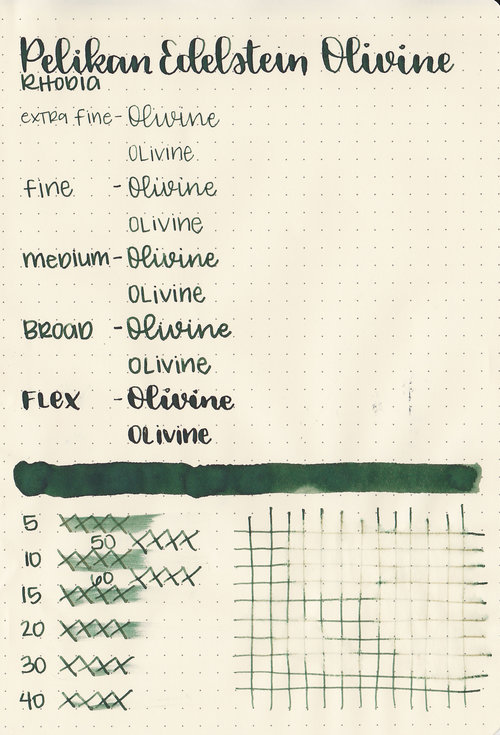 Pelikan Edelstein Olivine
Rhodia
extra fine - Olivine
Olivine
fine - Olivine
Olivine
medium - Olivine
Olivine
Broad - Olivine
Olivine
Flex - Olivine
Olivine
5 XXXX
50 XXXX
10 XXXX
60 XXXX
15 XXXX
20 XXXX
30 XXXX
40 XXXX